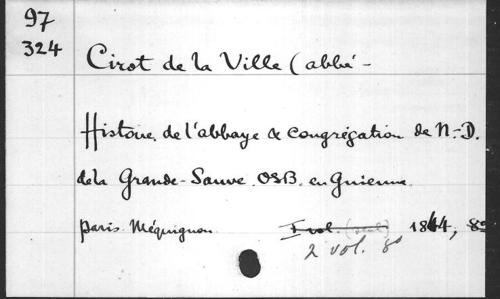 97
324
Cirot de la Ville (abbé -
Histoire de l'abbaye & congrégation de N.-D.
de la Grande-Sauve. OSB. en Guienne
Paris Méquignon I vol. (seul) 1844, 8º
2 vol. 8º